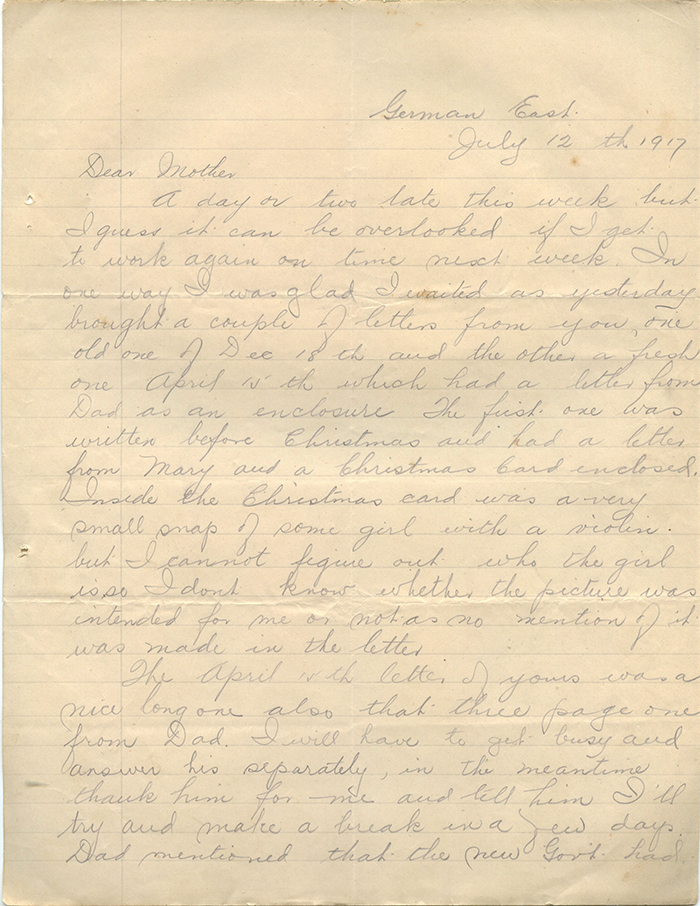 German East.
July 12 th 1917
Dear Mother
A day or two late this week but
I guess it can be overlooked if I get
to work again on time next week. In
one way I was glad I waited as yesterday
brought a couple of letters from you, one
old one of Dec 18 th and the other a fresh
one April 15 th which had a letter from
Dad as an enclosure. The first one was
written before Christmas and had a letter
from Mary and a Christmas Card enclosed.
Inside the Christmas card was a very
small snap of some girl with a violin.
but I cannot figure out who the girl
is so I dont know whether the picture was
intended for me or not as no mention of it
was made in the letter
The April 15 th letter of yours was a
nice long one also that three page one
from Dad. I will have to get busy and
answer his separately, in the meantime
thank him for me and tell him I'll
try and make a break in a few days.
Dad mentioned that the new Gov't had